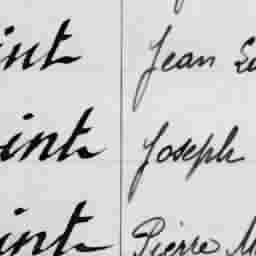 int Jean
int Joseph
int Pierre